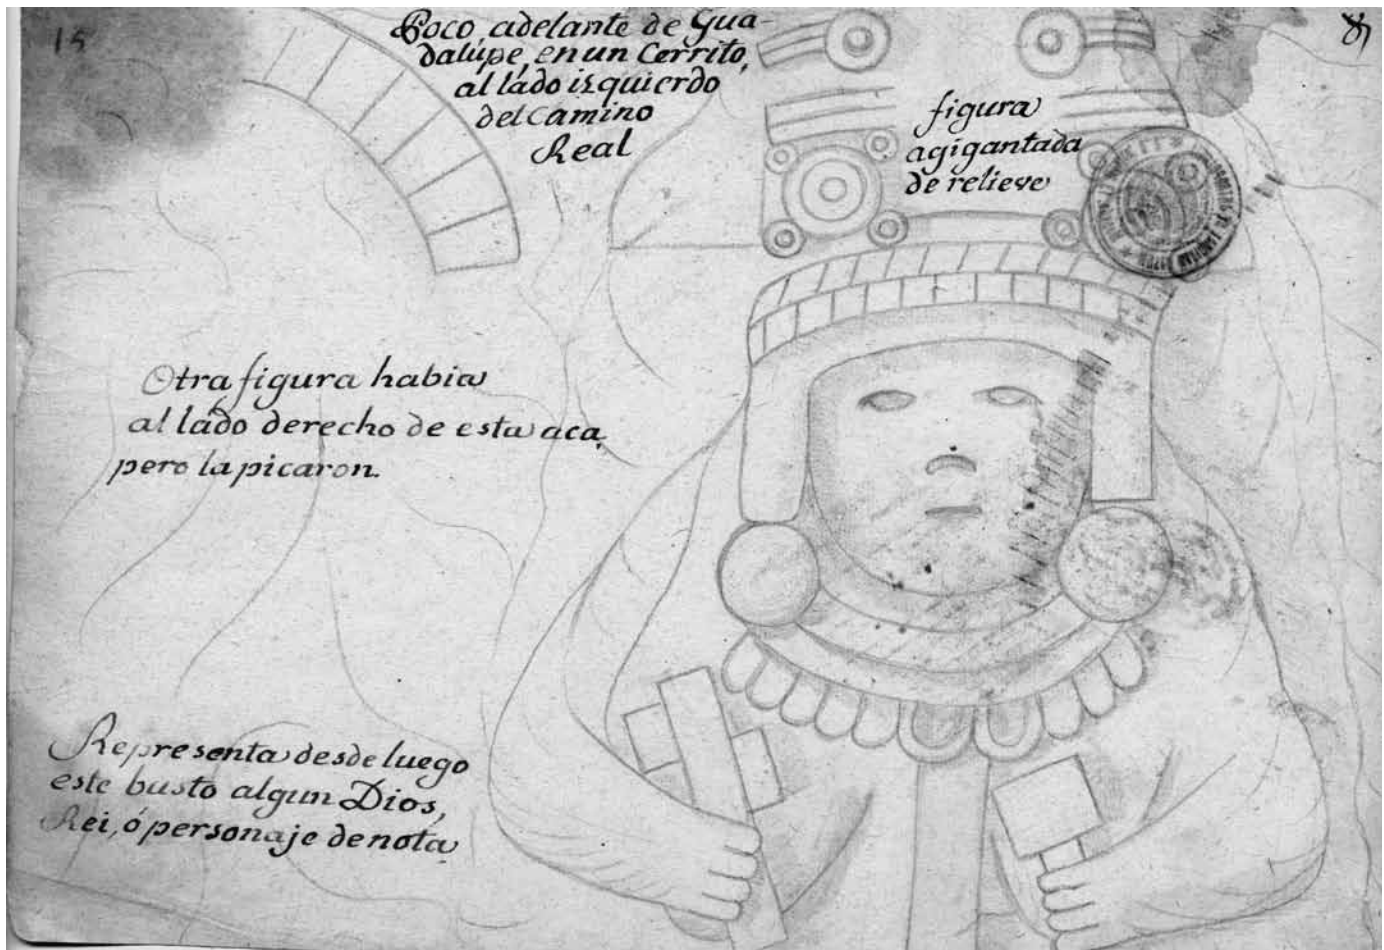 15
Poco, adelante de Gua-
dalupe, en un Cerrito,
al lado izquierdo
del camino
Real
figura
agigantada
de relieve
Otra figura habia
al lado derecho de esta aca,
pero la picaron.
Representa desde luego
este busto algun Dios,
Rei, ó personaje de nota